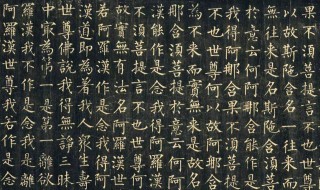 果不須菩提言不也世尊
以故斯陀含名一往來而
無往來是名斯陀含須菩
於意云何阿那含能作是
我得阿那含果不須菩提
不也世尊何以故阿那含
為不來而實無來是故名
那含須菩提於意云何阿
漢能作是念我得阿羅漢
故實無有法名阿羅漢世
若阿羅漢作是念我得阿
漢道即為著我人眾生壽
世尊佛說我得無諍三昧
中最為第一是第一離欲
羅漢我不作是念我是離
阿羅漢世尊我若作是念